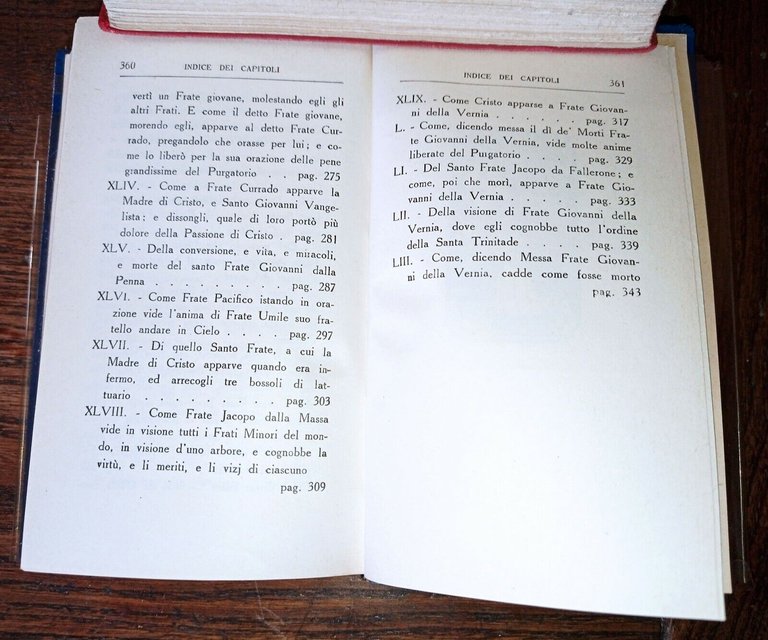 360 INDICE DEI CAPITOLI
vertì un Frate giovane, molestando egli gli
altri Frati. E come il detto Frate giovane,
morendo egli, apparve al detto Frate Cur-
rado, pregandolo che orasse per lui; e co-
me lo liberò per la sua orazione delle pene
grandissime del Purgatorio . . pag. 275
XLIV. - Come a Frate Currado apparve la
Madre di Cristo, e Santo Giovanni Vange-
lista; e dissongli, quale di loro portò più
dolore della Passione di Cristo . pag. 281
XLV. - Della conversione, e vita, e miracoli,
e morte del santo Frate Giovanni dalla
Penna . . . . . . . . . pag. 287
XLVI. - Come Frate Pacifico istando in ora-
zione vide l'anima di Frate Umile suo fra-
tello andare in Cielo . . . . pag. 297
XLVII. - Di quello Santo Frate, a cui la
Madre di Cristo apparve quando era in-
fermo, ed arrecogli tre bossoli di lat-
tuario . . . . . . . . . pag. 303
XLVIII. - Come Frate Jacopo dalla Massa
vide in visione tutti i Frati Minori del mon-
do, in visione d'uno arbore, e cognobbe la
virtù, e li meriti, e li vizj di ciascuno
pag. 309
INDICE DEI CAPITOLI 361
XLIX. - Come Cristo apparse a Frate Giovan-
ni della Vernia . . . . . . pag. 317
L. - Come, dicendo messa il dì de' Morti Fra-
te Giovanni della Vernia, vide molte anime
liberate del Purgatorio . . . . pag. 329
LI. - Del Santo Frate Jacopo da Fallerone; e
come, poi che morì, apparve a Frate Gio-
vanni della Vernia . . . . . pag. 333
LII. - Della visione di Frate Giovanni della
Vernia, dove egli cognobbe tutto l'ordine
della Santa Trinitade . . . . pag. 339
LIII. - Come, dicendo Messa Frate Giovan-
ni della Vernia, cadde come fosse morto
pag. 343